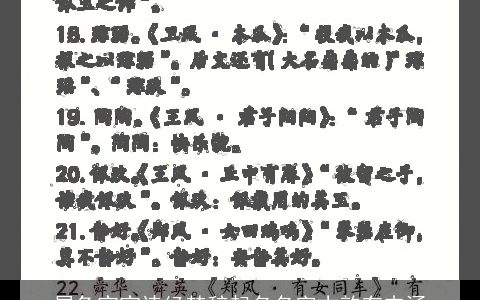 18. 琼琚。《卫风 · 木瓜》:“ 投我以木瓜，
报之以琼琚 ”。后文还有(
瑶 ”、“ 琼玖 ”。
19. 陶陶。《王风 · 君子阳阳》:“ 君子陶
陶 ”。陶陶：快乐貌。
20. 佩玖。《王风 · 丘中有麻》“ 彼留之子，
贻我佩玖 ”。佩玖：佩戴用的美玉。
21. 静好。《郑风 · 女曰鸡鸣》“ 琴瑟在御，
莫不静好 ”。静好：
22. 舜华、舜英。《郑风 · 有女同车》“ 有